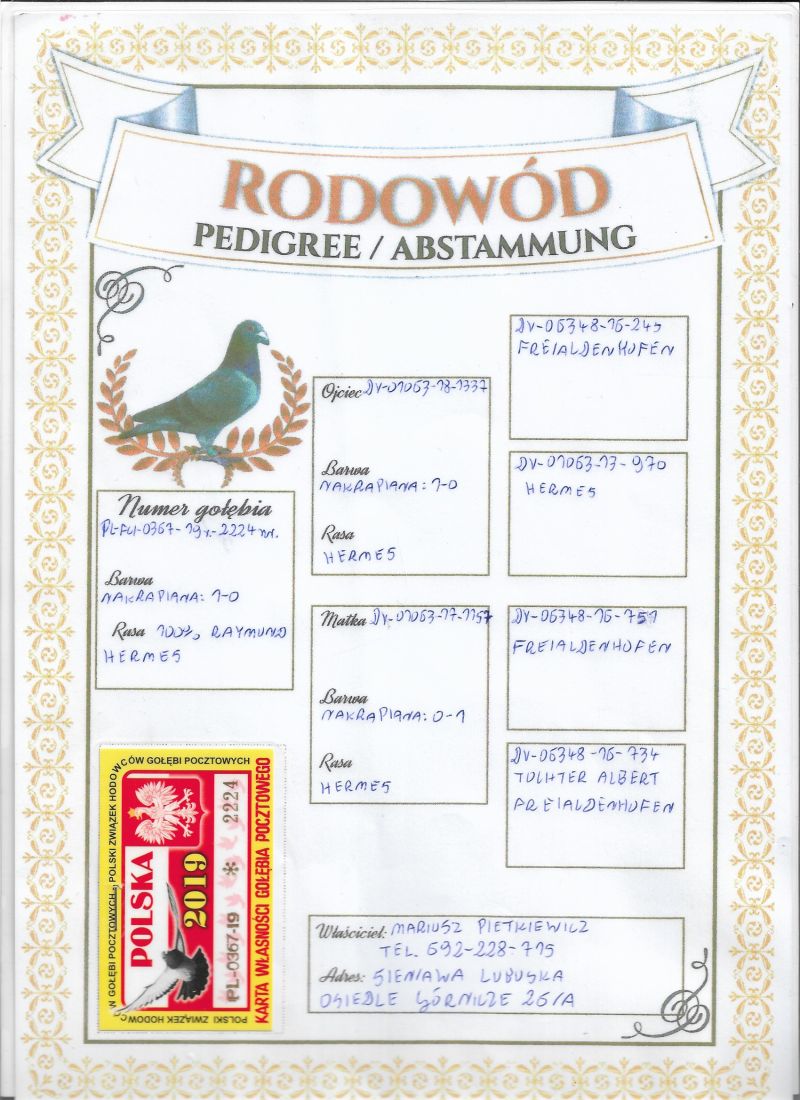 RODOWÓD
PEDIGREE / ABSTAMMUNG
Numer gołębia
PL-FCI-0367-19r.-2224 nr.
Barwa
NAKRAPIANA: 1-0
Rasa 100% RAYMUND
HERMES
Ojciec DV-01063-18-1337
Barwa
NAKRAPIANA: 1-0
Rasa
HERMES
Matka DV-01063-17-1157
Barwa
NAKRAPIANA: 0-1
Rasa
HERMES
DV-06348-16-245
FREIALDENHOFEN
DV-01063-13-970
HERMES
DV-06348-16-751
FREIALDENHOFEN
DV-06348-16-734
TOCHTER ALBERT
FREIALDENHOFEN
POLSKI ZWIĄZEK HODOWCÓW GOŁĘBI POCZTOWYCH
POLSKA
2019
PL-0367-19 * 2224
KARTA WŁASNOŚCI GOŁĘBIA POCZTOWEGO
Właściciel: MARIUSZ PIETKIEWICZ
TEL. 692-228-715
Adres: SIENIAWA LUBUSKA
OSIEDLE GÓRNICZE 26/A